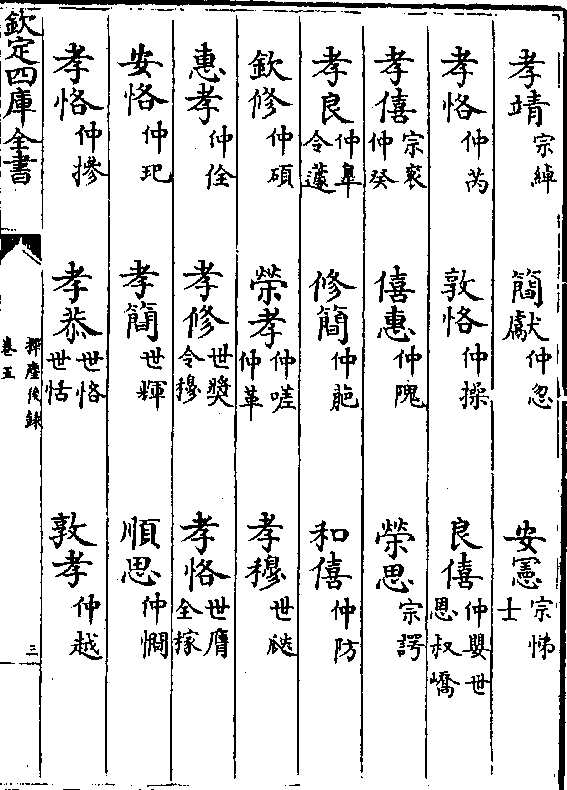 孝靖宗綽　簡獻仲忽　安憲宗悌士
孝恪仲芮　敦恪仲操　良僖仲嬰世恩叔嶠
孝僖宗袞仲癸　僖惠仲隗　榮思宗諤
孝良仲皐令蘧　修簡仲　和僖仲防
欽修仲碩　榮孝仲嗟仲革　孝穆世
惠孝仲佺　孝修世奬令穆　孝恪世膺全稼
安恪仲玘　孝簡世輝　順思仲㦖
孝恪仲摻　孝恭世恪世恬　敦孝仲越
欽定四庫全書
揮麈後錄
卷五
三